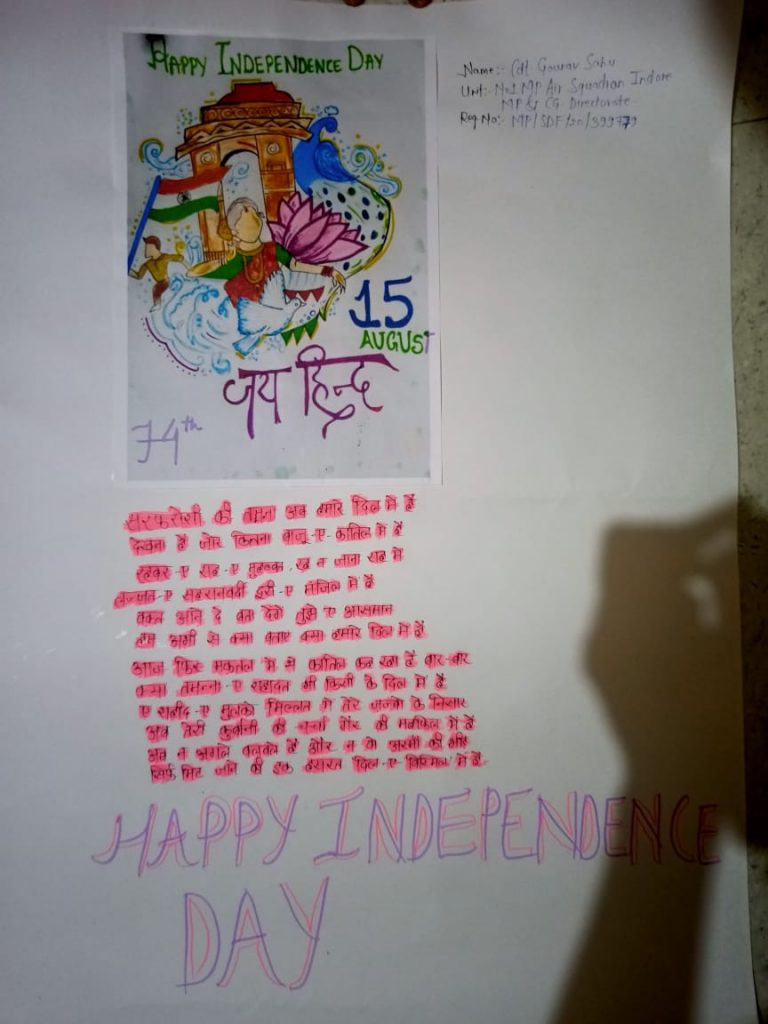 HAPPY INDEPENDENCE DAY
15
AUGUST
जय हिन्द
74th
Name:- Cdt Gourav Sahu
Unit:- No1 MP Air Squadran Indore
MP & CG Directorate
Reg.No:- MP/SDF/20/399779
सरफरोशी की तमन्ना अब हमारे दिल में है
देखना है जोर कितना बाजू-ए-कातिल में है
रहबर-ए राह-ए मुहब्बत रह न जाना राह में
लज्जत-ए सहरानवर्दी दूरी-ए मंजिल में है
वक्त आने दे बता देंगे तुझे ए आसमान
हम अभी से क्या बताए क्या हमारे दिल में है
आज फिर मकतल में ये कातिल कह रहा है बार-बार
क्या तमन्ना-ए शहादत भी किसी के दिल में है
ए शहीद-ए मुल्को मिल्लत में तेरे जज्बे के निसार
अब तेरी कुर्बानी की चर्चा गैर की महफिल में है
अब न अगले वलवले है और न वो अरमो की भीड
सिर्फ मिट जाने की इक हसरत दिल-ए-बिस्मिल में है
HAPPY INDEPENDENCE
DAY